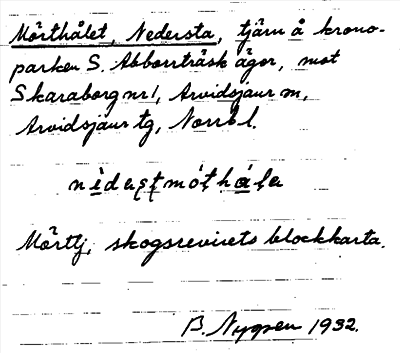 Mörthålet, Nedersta, tjärn å krono-
parken S. Abborrträsk äger, mot
Skaraborg nr 1, Arvidsjaur m,
Arvidsjaur tg, Norrb l.
Mörttj, skogsrevirets blockkarta.
B. 1932.